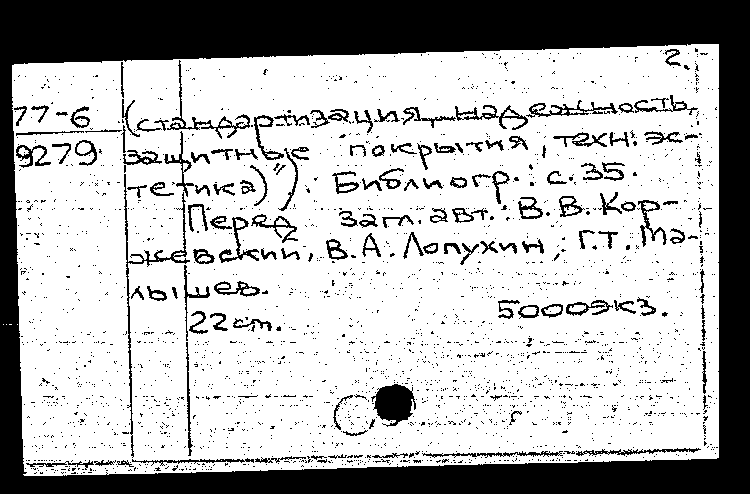 2.
77-6 (стандартизация, надежность,
9279 защитные покрытия, техн. эс-
тетика)"). Библиогр.: с. 35.
Перед загл. авт.: В. В. Кор-
жевский, В. А. Лопухин, Г. Т. Ма-
лышев.
22 см. 5000экз.